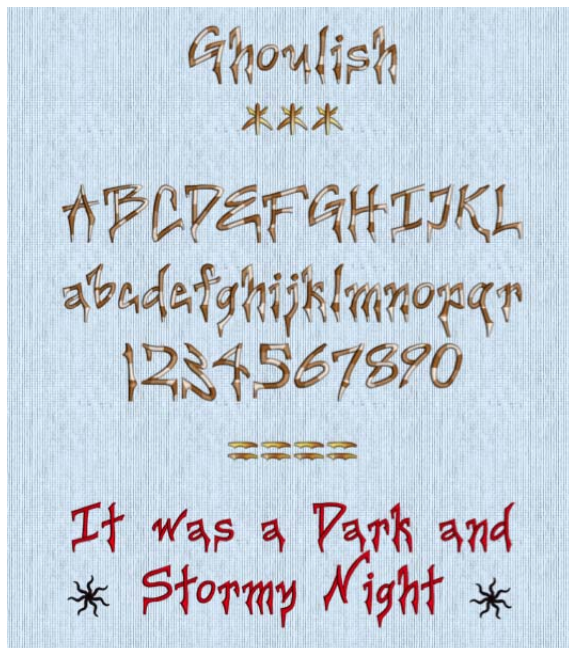 Ghoulish
***
ABCDEFGHIJKL
abcdefghijklmnopqr
1234567890
====
It was a Dark and
Stormy Night